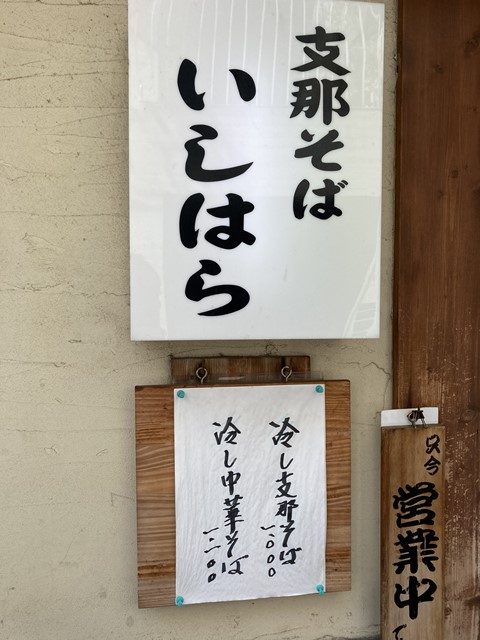 支那そば
いしはら
冷し支那そば
一、〇〇〇
冷し中華そば
一、一〇〇
只今
営業中